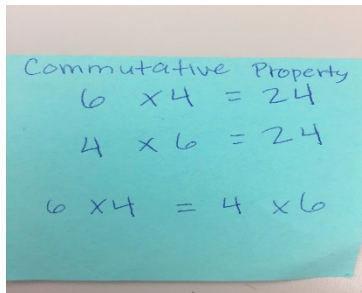 Commutative Property
6 x 4 = 24
4 x 6 = 24
6 x 4 = 4 x 6